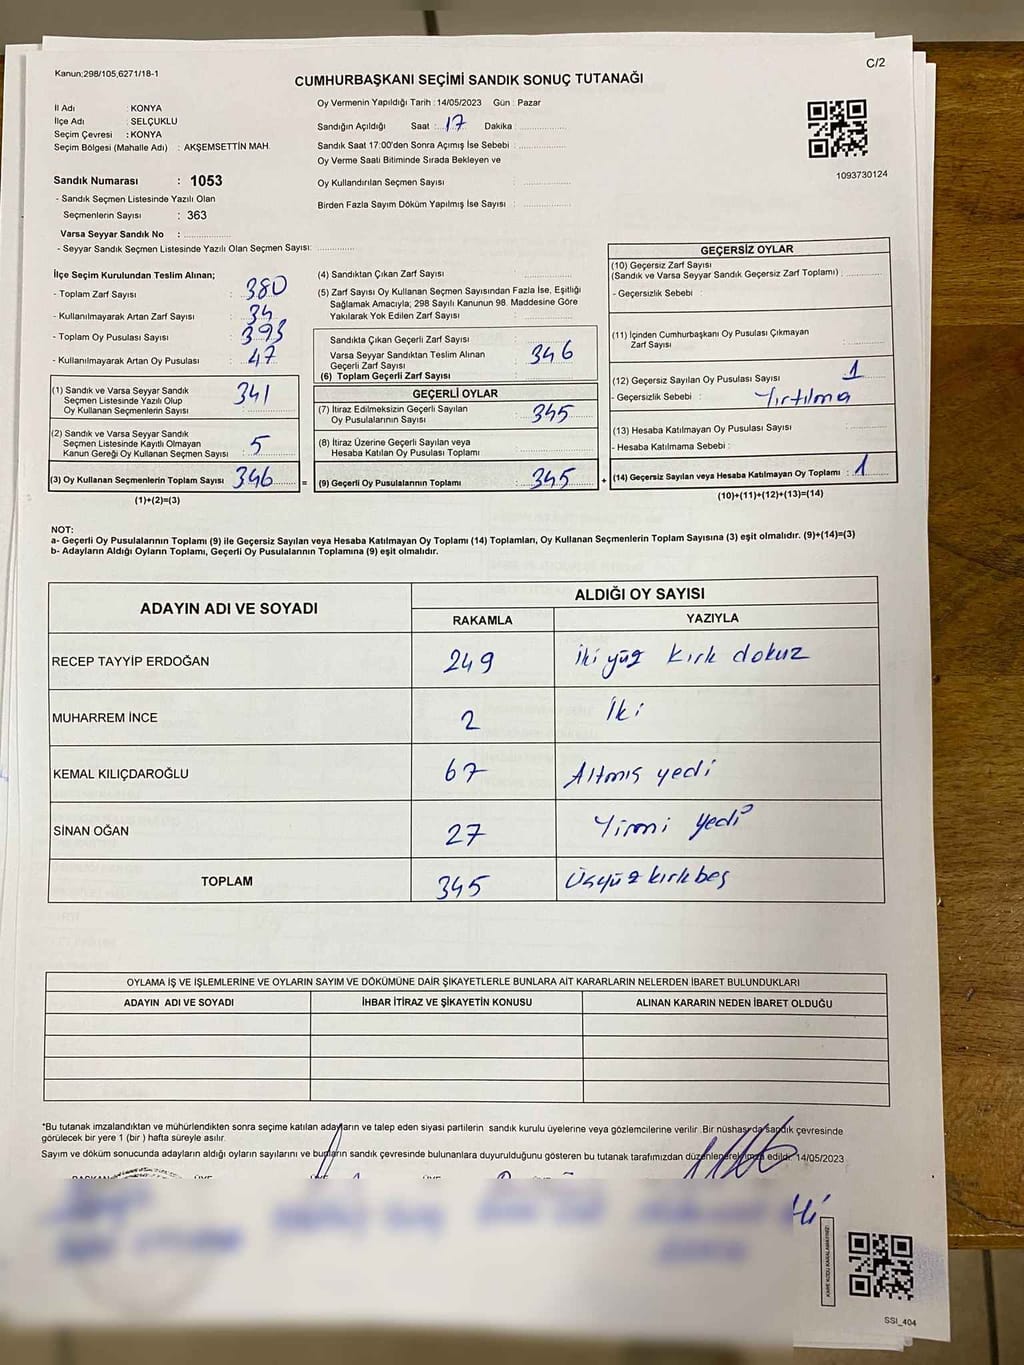 Kanun;298/105,6271/18-1
C/2
CUMHURBAŞKANI SEÇİMİ SANDIK SONUÇ TUTANAĞI
İl Adı : KONYA
İlçe Adı : SELÇUKLU
Seçim Çevresi : KONYA
Seçim Bölgesi (Mahalle Adı) : AKŞEMSETTİN MAH.
Oy Vermenin Yapıldığı Tarih : 14/05/2023 Gün : Pazar
Sandığın Açıldığı Saat : 17 Dakika :
Sandık Saat 17:00'den Sonra Açımış İse Sebebi :
Oy Verme Saati Bitiminde Sırada Bekleyen ve
Oy Kullandırılan Seçmen Sayısı :
Birden Fazla Sayım Döküm Yapılmış İse Sayısı :
1093730124
Sandık Numarası : 1053
- Sandık Seçmen Listesinde Yazılı Olan
Seçmenlerin Sayısı : 363
Varsa Seyyar Sandık No :
- Seyyar Sandık Seçmen Listesinde Yazılı Olan Seçmen Sayısı:
İlçe Seçim Kurulundan Teslim Alınan;
- Toplam Zarf Sayısı : 380
- Kullanılmayarak Artan Zarf Sayısı : 34
- Toplam Oy Pusulası Sayısı : 393
- Kullanılmayarak Artan Oy Pusulası : 47
(1) Sandık ve Varsa Seyyar Sandık
Seçmen Listesinde Yazılı Olup
Oy Kullanan Seçmenlerin Sayısı : 341
(2) Sandık ve Varsa Seyyar Sandık
Seçmen Listesinde Kayıtlı Olmayan
Kanun Gereği Oy Kullanan Seçmen Sayısı : 5
(3) Oy Kullanan Seçmenlerin Toplam Sayısı : 346 =
(1)+(2)=(3)
(4) Sandıktan Çıkan Zarf Sayısı :
(5) Zarf Sayısı Oy Kullanan Seçmen Sayısından Fazla İse, Eşitliği
Sağlamak Amacıyla; 298 Sayılı Kanunun 98. Maddesine Göre
Yakılarak Yok Edilen Zarf Sayısı :
Sandıkta Çıkan Geçerli Zarf Sayısı
Varsa Seyyar Sandıktan Teslim Alınan
Geçerli Zarf Sayısı : 346
(6) Toplam Geçerli Zarf Sayısı :
GEÇERLİ OYLAR
(7) İtiraz Edilmeksizin Geçerli Sayılan
Oy Pusulalarının Sayısı : 345
(8) İtiraz Üzerine Geçerli Sayılan veya
Hesaba Katılan Oy Pusulası Toplamı :
(9) Geçerli Oy Pusulalarının Toplamı : 345 +
GEÇERSİZ OYLAR
(10) Geçersiz Zarf Sayısı
(Sandık ve Varsa Seyyar Sandık Geçersiz Zarf Toplamı) :
- Geçersizlik Sebebi :
(11) İçinden Cumhurbaşkanı Oy Pusulası Çıkmayan
Zarf Sayısı :
(12) Geçersiz Sayılan Oy Pusulası Sayısı : 1
- Geçersizlik Sebebi : Yırtılma
(13) Hesaba Katılmayan Oy Pusulası Sayısı :
- Hesaba Katılmama Sebebi :
(14) Geçersiz Sayılan veya Hesaba Katılmayan Oy Toplamı : 1
(10)+(11)+(12)+(13)=(14)
NOT:
a- Geçerli Oy Pusulalarının Toplamı (9) ile Geçersiz Sayılan veya Hesaba Katılmayan Oy Toplamı (14) Toplamları, Oy Kullanan Seçmenlerin Toplam Sayısına (3) eşit olmalıdır. (9)+(14)=(3)
b- Adayların Aldığı Oyların Toplamı, Geçerli Oy Pusulalarının Toplamına (9) eşit olmalıdır.
ADAYIN ADI VE SOYADI ALDIĞI OY SAYISI
RAKAMLA YAZIYLA
RECEP TAYYİP ERDOĞAN 249 İki yüz kırk dokuz
MUHARREM İNCE 2 İki
KEMAL KILIÇDAROĞLU 67 Altmış yedi
SİNAN OĞAN 27 Yirmi yedi
TOPLAM 345 Üçyüz kırkbeş
OYLAMA İŞ VE İŞLEMLERİNE VE OYLARIN SAYIM VE DÖKÜMÜNE DAİR ŞİKAYETLERLE BUNLARA AİT KARARLARIN NELERDEN İBARET BULUNDUKLARI
ADAYIN ADI VE SOYADI İHBAR İTİRAZ VE ŞİKAYETİN KONUSU ALINAN KARARIN NEDEN İBARET OLDUĞU
*Bu tutanak imzalandıktan ve mühürlendikten sonra seçime katılan adayların ve talep eden siyasi partilerin sandık kurulu üyelerine veya gözlemcilerine verilir. Bir nüshası da sandık çevresinde
görülecek bir yere 1 (bir ) hafta süreyle asılır.
Sayım ve döküm sonucunda adayların aldığı oyların sayılarını ve bunların sandık çevresinde bulunanlara duyurulduğunu gösteren bu tutanak tarafımızdan düzenlenerek imza edildi. 14/05/2023
SSI_404